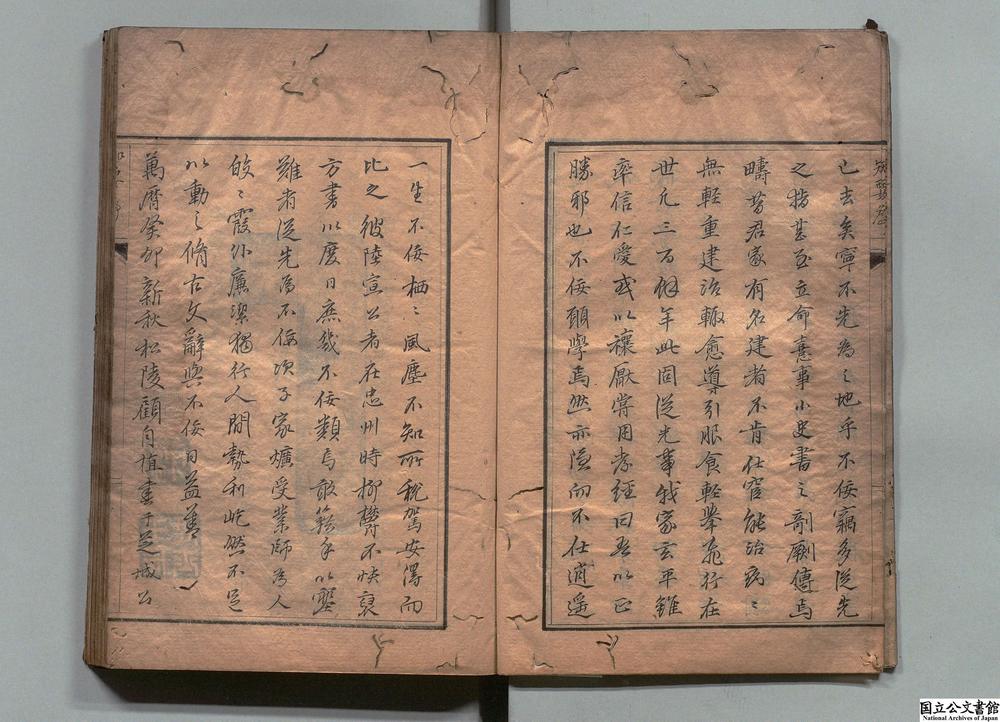 已去矣寧不先為之地乎不佞竊多從先
之指甚至立命憙事小史書之剞劂傳焉
疇昔君家有名建者不肯仕宦能治病々
無輕重建治輙愈導引服食輕舉飛行在
世凡三百餘年此固從先事我家玄平雖
率信仁愛或以禳厭嘗用孝經曰吾以正
勝邪也不佞願學焉然亦隱而不仕逍遥
一生不佞栖々風塵不知所稅駕安得而
比之彼陸宣公者在忠州時抑欎不快裒
方書以度日庶幾不佞類焉敢籍手以塞
難者從先為不佞次子家爌受業師為人
皎々霞外廉潔獨行人間勢利屹然不足
以動之脩古文辭與不佞日益善
萬曆癸卯新秋松陵顧自植書于芝城公
国立公文書館
National Archives of Japan